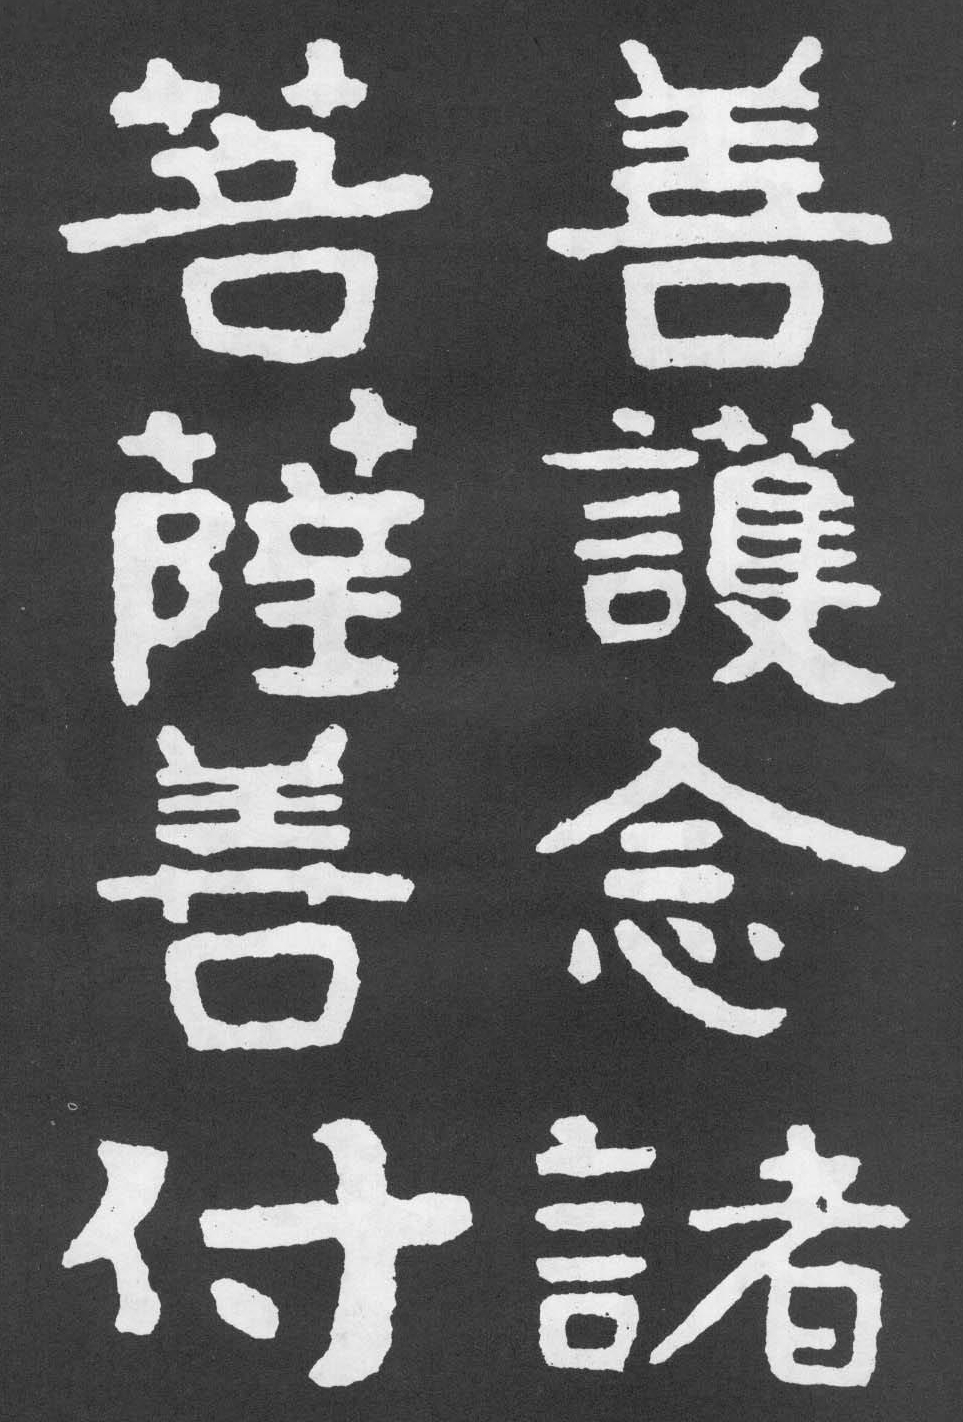 善護念諸
菩薩善付